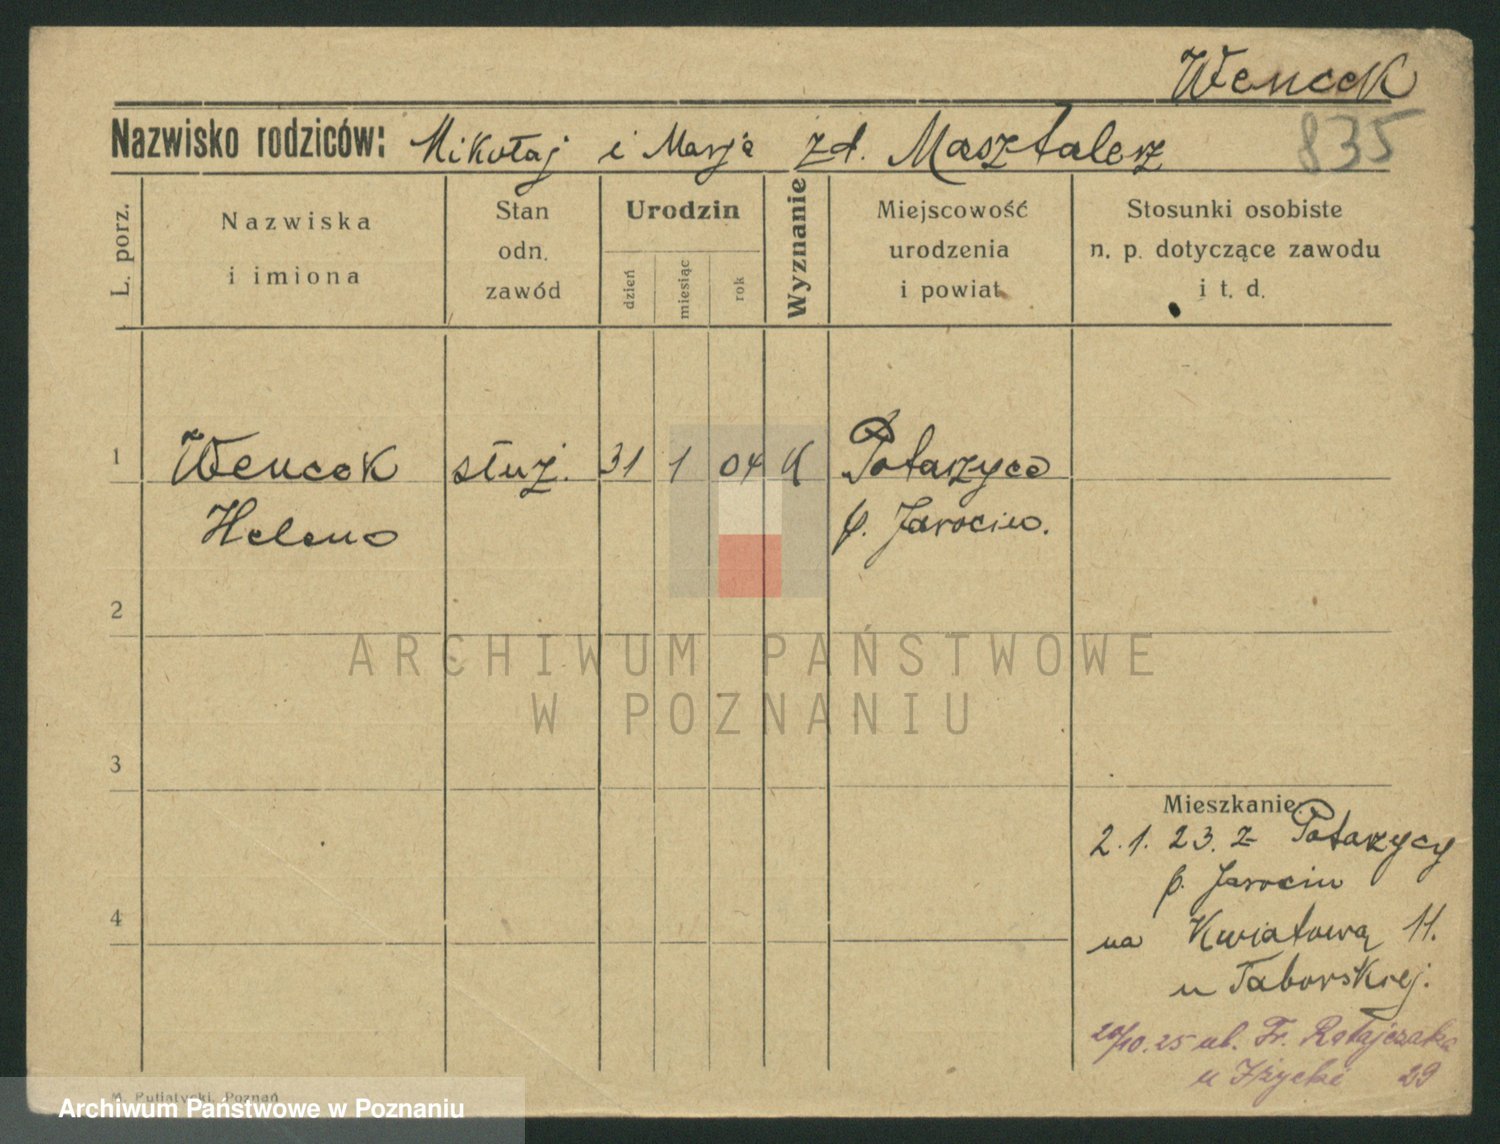 Wencek
835
Nazwisko rodziców: Mikołaj i Marja zd. Masztalerz
L. porz.
Nazwiska
i imiona
Stan
odn.
zawód
Urodzin
dzień
miesiąc
rok
Wyznanie
Miejscowość
urodzenia
i powiat
Stosunki osobiste
n. p. dotyczące zawodu
i t. d.
1 Wencek służ. 31 1 04 K Potarzyce
Helena p. Jarocin.
2
ARCHIWUM PAŃSTWOWE
W POZNANIU
3
Mieszkanie:
2.1.23. z Potarzycy
p. Jarocin
4
na Kwiatową 11.
u Taborskiej.
20/10.25 ul. Fr. Ratajczaka
u 29
M. Putiatycki, Poznań
Archiwum Państwowe w Poznaniu